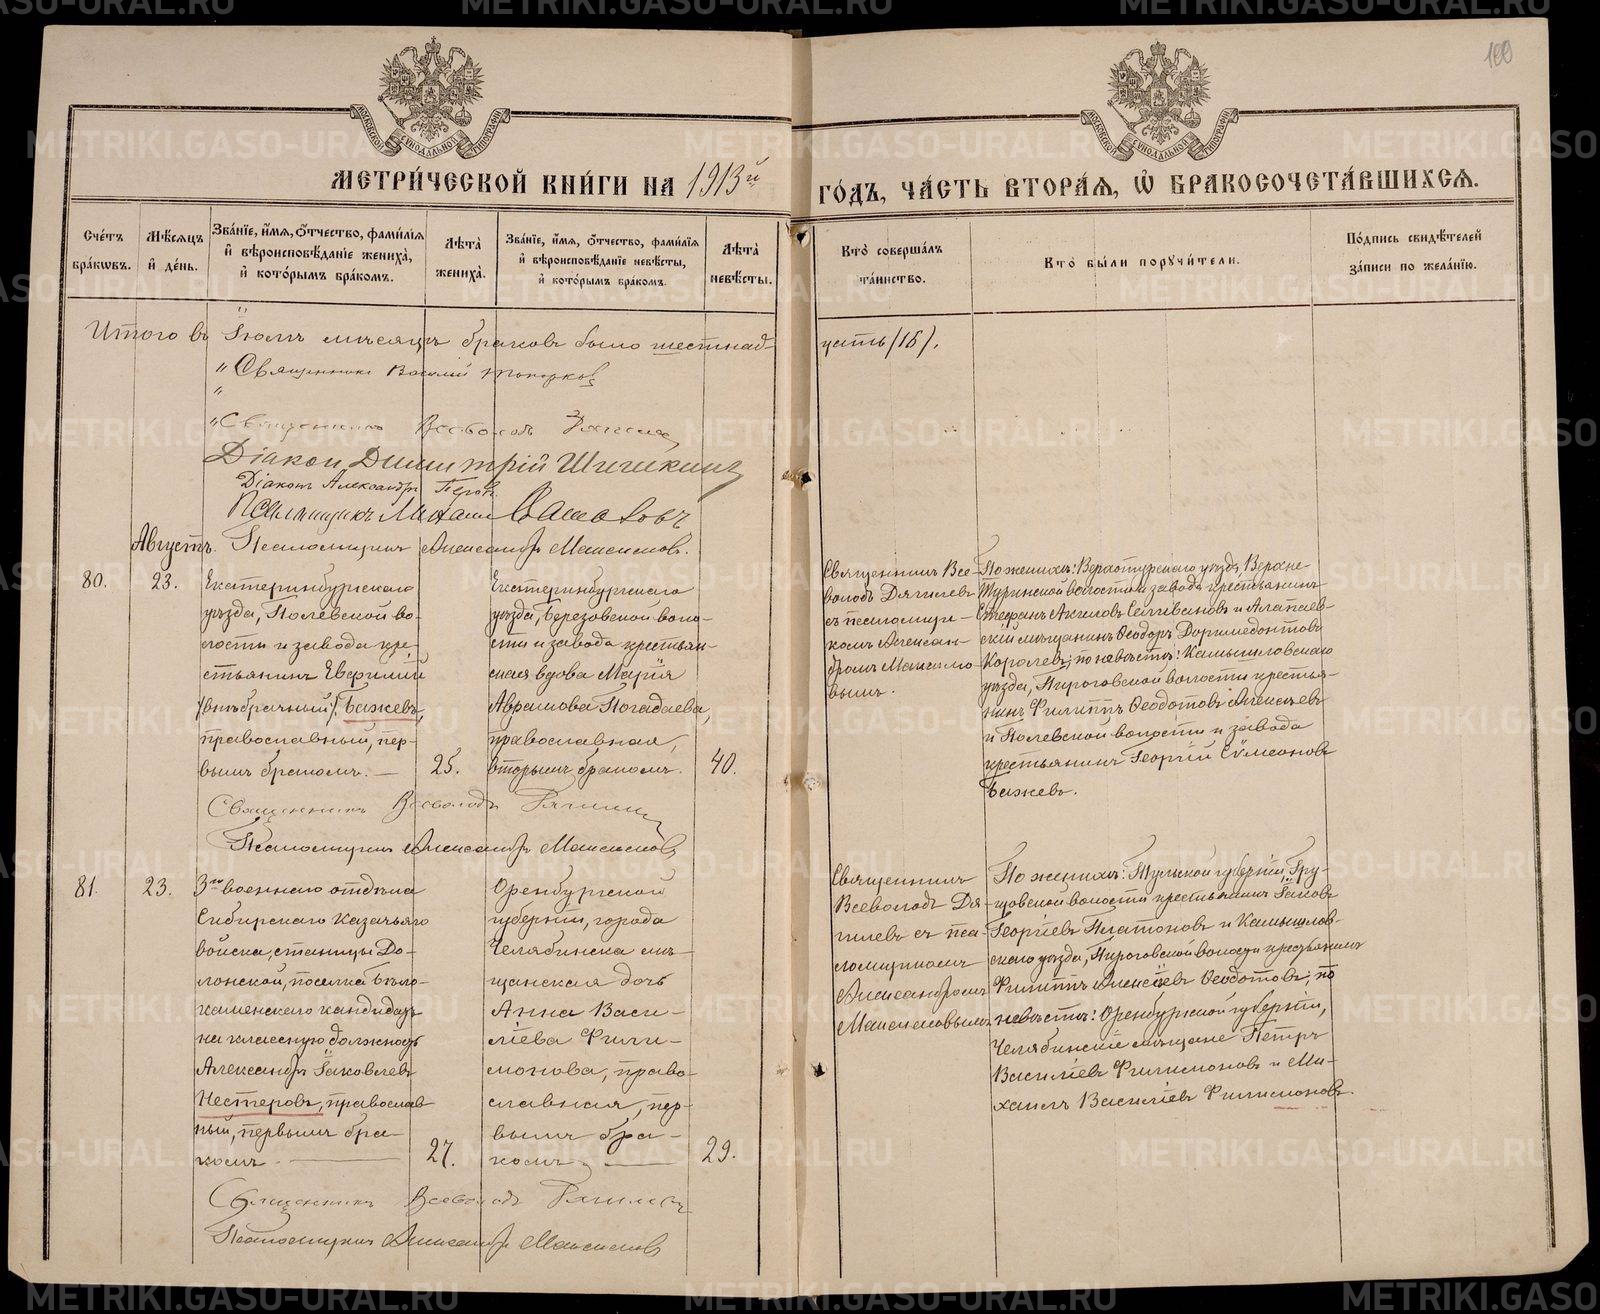 100
МОСКОВСКОЙ СѴНОДАЛЬНОЙ ТИПОГРАФІИ
МОСКОВСКОЙ СѴНОДАЛЬНОЙ ТИПОГРАФІИ
МЕТРИ́ЧЕСКОЙ КНИ́ГИ НА 1913й
ГО́ДЪ, ЧА́СТЬ ВТОРА́Я, Ѡ БРАКОСОЧЕТА́ВШИХСЯ.
Сче́тъ бра́кѡвъ.
Мѣ́сяцъ и де́нь.
Зва́нїе, и́мя, ѻ́тчество, фами́лїя и вѣроисповѣ́данїе жениха̀, и кото́рымъ бра́комъ.
Лѣ́та жениха̀.
Зва́нїе, и́мя, ѻ́тчество, фами́лїя и вѣроисповѣ́данїе невѣ́сты, и кото́рымъ бра́комъ.
Лѣ́та невѣ́сты.
Кто̀ соверша́лъ та́инство.
Кто̀ бы́ли порꙋчи́тели.
По́дпись свидѣ́телей за́писи по жела́нїю.
Итого въ Іюлѣ мѣсяцѣ браковъ было шестнад-
цать (16).
"Священникъ Василій Топорковъ
"
"Священникъ Всеволодъ Дягилевъ
Діаконъ Димитрій Шишкинъ
Діаконъ Александръ
Псаломщикъ
Августъ. Псаломщикъ Александръ Максимовъ.
80.
23.
Екатеринбургскаго
уѣзда, Полевской во-
лости и завода кре-
стьянинъ Евфимій
(внѣбрачный) Бажевъ,
православный, пер-
вымъ бракомъ. —
25.
Екатеринбургскаго
уѣзда, Березовской воло-
сти и завода крестьян-
ская вдова Марія
Авраамова Погадаева,
православная,
вторымъ бракомъ.
40.
Священникъ Все-
володъ Дягилевъ
съ псаломщи-
комъ Алексан-
дромъ Максимо-
вымъ.
По женихѣ: Верхотурскаго уѣзда, Верхне-
Туринской волости и завода крестьянинъ
Стефанъ Селивановъ и Алапаев-
скій мѣщанинъ Ѳеодоръ Доримедонтовъ
Королевъ; по невѣстѣ: Камышловскаго
уѣзда, Пироговской волости крестья-
нинъ Филиппъ Ѳеодотовъ Алексѣевъ
и Полевской волости и завода
крестьянинъ Георгій Сѵмеоновъ
Бажевъ.
Священникъ Всеволодъ Дягилевъ
Псаломщикъ Александръ Максимовъ
81.
23.
3го военнаго отдѣла
Сибирскаго Казачьяго
войска, станицы До-
лонской, поселка Бѣло-
каменскаго кандидатъ
на классную должность
Александръ Іаковлевъ
Нестеровъ, православ-
ный, первымъ бра-
комъ. —
27.
Оренбургской
губерніи, города
Челябинска мѣ-
щанская дочь
Анна Васи-
ліева Фили-
монова, право-
славная, пер-
вымъ бра-
комъ. —
29.
Священникъ
Всеволодъ Дя-
гилевъ съ пса-
ломщикомъ
Александромъ
Максимовымъ
По женихѣ: Тульской губерніи,
волости крестьянинъ Іаковъ
Георгіевъ Платоновъ и Камышлов-
скаго уѣзда, Пироговской волости крестьянинъ
Филиппъ Алексѣевъ Ѳеодотовъ; по
невѣстѣ: Оренбургской губерніи,
Челябинскіе мѣщане Петръ
Василіевъ Филимоновъ и Ми-
хаилъ Василіевъ Филимоновъ.
Священникъ Всеволодъ Дягилевъ
Псаломщикъ Александръ Максимовъ
METRIKI.GASO-URAL.RU